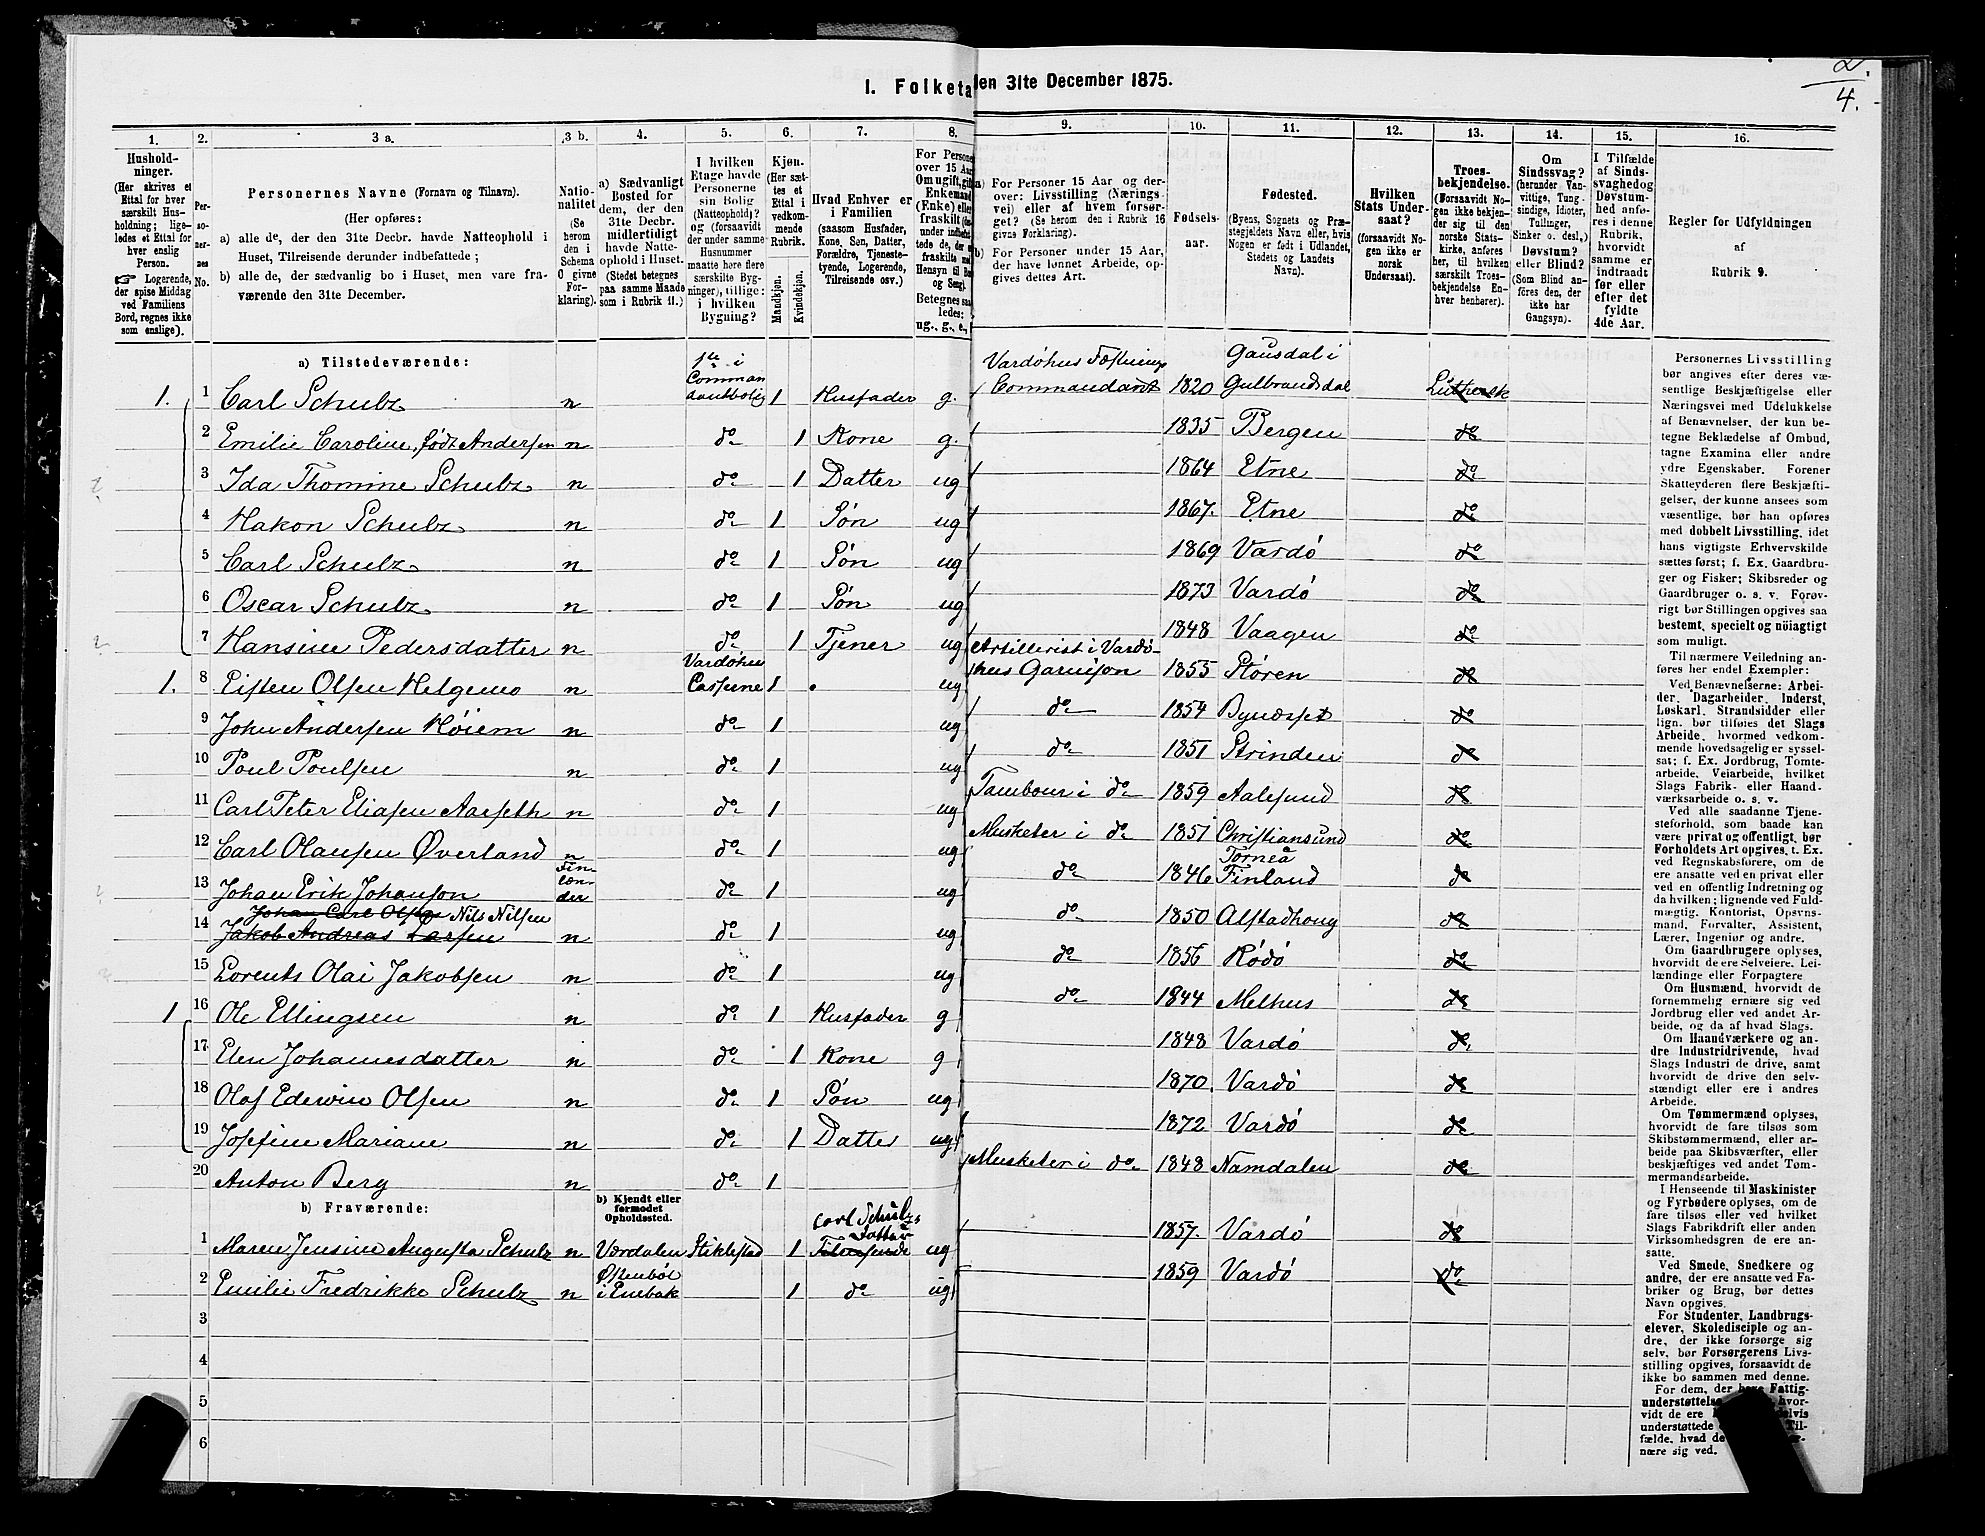 I. Folketa
den 31te December 1875.
2.
4.
1. 2. 3 a. 3 b. 4. 5. 6. 7. 8. 9. 10. 11. 12. 13. 14. 15. 16.
Hushold-
ninger.
(Her skrives et
Ettal for hver
særskilt Hus-
holdning; lige-
ledes et Ettal for
hver enslig
Person.
☞ Logerende,
der spise Middag
ved Familiens
Bord, regnes ikke
som enslige).
Per-
so-
ner-
nes
No.
Personernes Navne (Fornavn og Tilnavn).
(Her opføres:
a) alle de, der den 31te Decbr. havde Natteophold i
Huset, Tilreisende derunder indbefattede;
b) alle de, der sædvanlig bo i Huset, men vare fra-
værende den 31te December.
Natio-
nalitet
(Se
herom
den i
Schema
0 givne
For-
klaring).
a) Sædvanligt
Bosted for
dem, der den
31te Decbr.
midlertidigt
havde Natte-
ophold i Huset.
(Stedet betegnes
paa samme Maade
som i Rubrik 11.)
I hvilken
Etage havde
Personerne
sin Bolig
(Natteophold)?
og (forsaavidt
der under samme
Husnummer
maatte høre flere
særskilte Byg-
ninger), tillige:
i hvilken
Bygning?
Kjøn.
(Her sæt-
tes et
Ettal i
vedkom-
mende
Rubrik.
Mandkjøn.
Kvindekjøn.
Hvad Enhver er
i Familien
(saasom Husfader,
Kone, Søn, Datter,
Forældre, Tjeneste-
tyende, Logerende,
Tilreisende osv.)
For Persone
over 15 Aar
Om ugift, gift
Enkemand
(Enke) eller
fraskilt
Betegnes saa
ledes:
ug., g., e.,
a) For Personer 15 Aar og der-
over: Livsstilling (Nærings-
vei) eller af hvem forsør-
get? (Se herom den i Rubrik 16
givne Forklaring).
b) For Personer under 15 Aar,
der have lønnet Arbeide, op-
gives dettes Art.
Fødsels-
aar.
Fødested.
(Byens, Sognets og Præ-
stegjeldets Navn eller, hvis
Nogen er født i Udlandet,
Stedets og Landets
Navn).
Hvilken
Stats Under-
saat?
(forsaavidt No-
gen ikke er
norsk
Undersaat).
Troes-
bekjendelse.
(Forsaavidt No-
gen ikke bekjen-
der sig til den
norske Stats-
kirke, anføres
her, til hvilken
særskilt Troes-
bekjendelse En-
hver henhører).
Om
Sindssvag?
(herunder Van-
vittige, Tung-
sindige, Idioter,
Tullinger,
Sinker o. desl.,)
Døvstum?
eller Blind?
(Som Blind an-
føres den, der
ikke har
Gangsyn).
I Tilfælde
af Sinds-
svaghed og
Døvstum-
hed anfø-
res i denne
Rubrik,
hvorvidt
samme er
indtraadt
før eller
efter det
fyldte
4de Aar.
Regler for Udfyldningen
af
Rubrik 9.
a) Tilstedeværende:
1. 1 Carl Schulz n 1ste i Commandantbolig 1 Husfader g. Vardøhus Fæstnings Commandant 1820 Gausdal i Gulbrandsdal Luthersk
2 Emilie Caroline, født Andersen n do 1 Kone g. 1835 Bergen do
3 Ida Thomine Schulz n do 1 Datter ug 1864 Etne do
4 Hakon Schulz n do 1 Søn ug 1867. Etne do
5 Carl Schulz n do 1 Søn ug 1869 Vardø do
6 Oscar Schulz n do 1 Søn ug 1873 Vardø do
7 Hansine Pedersdatter n do 1 Tjener ug 1848 Vaagen do
1. 8 Eisten Olsen Helgemo n Vardøhus Caserne 1 ug Artillerist i Vardøhus Garnison 1855 Støren do
9 John Andersen Høiem n do 1 ug do 1854 Bynæsset do
10 Poul Poulsen n do 1 ug do 1851 Strinden do
11 Carl Peter Eliasen Aarseth n do 1 ug Tambour i do 1859 Aalesund do
12 Carl Olausen Øverland n do 1 ug Musketer i do 1851 Christiansund do
13 Johan Erik Johanson Finlænder do 1 ug do 1846 Torneå Finland do
Johan Carl Olsen Nils Nilsen
14 Jakob Andreas Larsen n do 1 ug do 1850 Alstadhoug do
15 Lorents Olai Jakobsen n do 1 ug do 1856 Rødø do
1 16 Ole Ellingsen n do 1 Husfader g do 1844 Melhus do
17 Elen Johannesdatter n do 1 Kone g 1848 Vardø do
18 Olaf Edevin Olsen n do 1 Søn ug 1870. Vardø do
19 Josefine Mariane n do 1 Datter ug 1872 Vardø do
20 Anton Berg n do 1 Musketer i do 1848 Namdalen do
b) Fraværende:
b) Kjendt eller
formodet
Opholdssted.
1 Maren Jensine Augusta Schulz n Værdalen Stiklestad 1 Carl Schulzs Datter Tilreisende ug 1857. Vardø do
2 Emilie Fredrikke Schulz n Østenbøl i Enebak 1 do ug 1859 Vardø do
3
4
5
6
Personernes Livsstilling
bør angives efter deres væ-
sentlige Beskjæftigelse eller
Næringsvei med Udelukkelse
af Benævnelser, der kun be-
tegne Beklædelse af Ombud,
tagne Examina eller andre
ydre Egenskaber. Forener
Skatteyderen flere Beskjæfti-
gelser, der kunne ansees som
væsentlige, bør han opføres
med dobbelt Livsstilling, idet
hans vigtigste Erhvervskilde
sættes først; f. Ex. Gaardbru-
ger og Fisker; Skibsreder og
Gaardbruger o. s. v. Forøv-
rigt bør Stillingen opgives saa
bestemt, specielt og nöiagtigt
som muligt.
Til nærmere Veiledning an-
føres her endel Exempler:
Ved Benævnelserne: Arbei-
der, Dagarbeider, Inderst,
Løskarl, Strandsidder eller
lign. bør tilføies det Slags
Arbeide, hvormed vedkom-
mende hovedsagelig er syssel-
sat; f. Ex. Jordbrug, Tomte-
arbeide, Veiarbeide, hvilket
Slags Fabrik- eller Haand-
værksarbeide o. s. v.
Ved alle saadanne Tjene-
steforhold, som baade kan
være privat og offentligt, bør
Forholdets Art opgives, t. Ex.
ved Regnskabsførere, om de
ere ansatte ved en privat eller
ved en offentlig Indretning og
da hvilken; lignende ved Fuld-
mægtig, Kontorist, Opsyns-
mand, Forvalter, Assistent,
Lærer, Ingeniør og andre.
Om Gaardbrugere oplyses,
hvorvidt de ere Selveiere, Lei-
lændinge eller Forpagtere
Om Husmænd, hvorvidt de
fornemmelig ernære sig ved
Jordbrug eller ved andet Ar-
beide, og da af hvad Slags.
Om Haandværkere og an-
dre Industridrivende, hvad
Slags Industri de drive, samt
hvorvidt de drive den selv-
stændigt eller ere i andres
Arbeide.
Om Tømmermænd oplyses,
hvorvidt de fare tilsøs som
Skibstømmermænd, eller ar-
beide paa Skibsværfter, eller
beskjæftiges ved andet Tøm-
mermandsarbeide.
I Henseende til Maskinister
og Fyrbødere oplyses, om de
fare tilsøs eller ved hvilket
Slags Fabrikdrift eller anden
Virksomhedsgren de ere an-
satte.
Ved Smede, Snedkere og
andre, der ere ansatte ved Fa-
briker og Brug, bør dettes
Navn opgives.
For Studenter, Landbrugs-
elever, Skoledisciple og an-
dre, der ikke forsørge sig
selv, bør Forsørgerens Livs-
stilling opgives, forsaavidt de
ikke bo sammen med denne.
For dem, der have Fattig-
understøttelse hvor-
vidt de ere delvis
understøttede Til-
fælde, hvad de er-
nære sig ved.